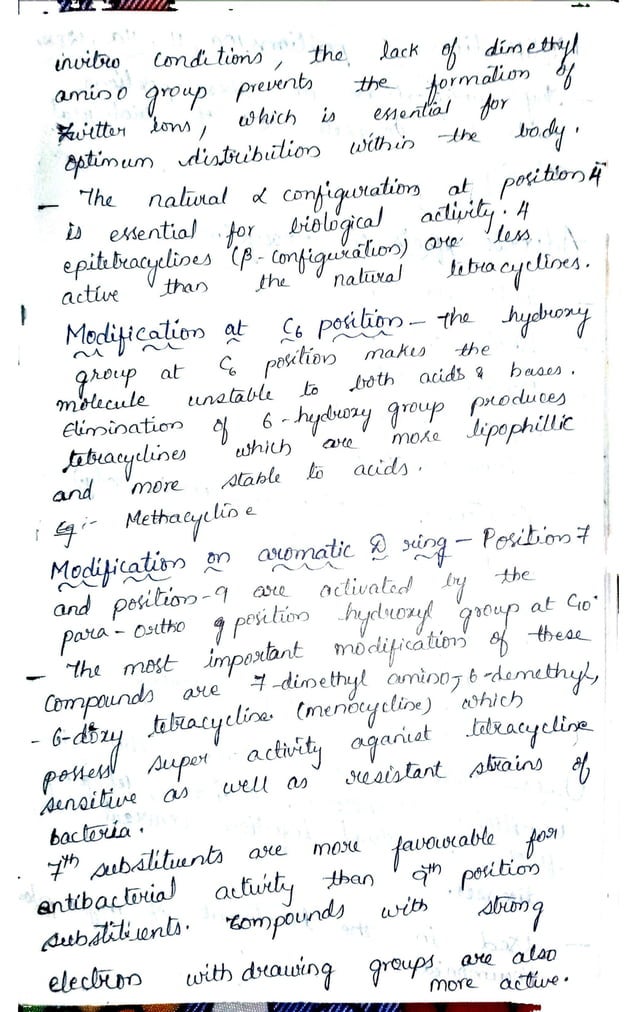 invitro conditions, the lack of dimethyl
amino group prevents the formation of
zwitter Ions, which is essential for
optimum distribution within the body.
- The natural α configuration at position 4
is essential for biological activity. 4
epitetracyclines (β-configuration) are less
active than the natural tetracyclines.
Modification at C6 position - The hydroxy
group at C6 position makes the
molecule unstable to both acids & bases.
Elimination of 6-hydroxy group produces
tetracyclines which are more lipophillic
and more stable to acids.
Eg:- Methacycline
Modification on aromatic D ring - Position 7
and position-9 are activated by the
para-ortho position hydroxyl group at C10.
- The most important modification of these
Compounds are 7-dimethyl amino, 6-demethyl,
- 6-doxy tetracycline (menocycline) which
possess super activity aganist tetracycline
sensitive as well as resistant strains of
bacteria.
7th substituents are more favourable for
antibacterial activity than 9th position
substituents. Compounds with strong
electron withdrawing groups are also
more active.